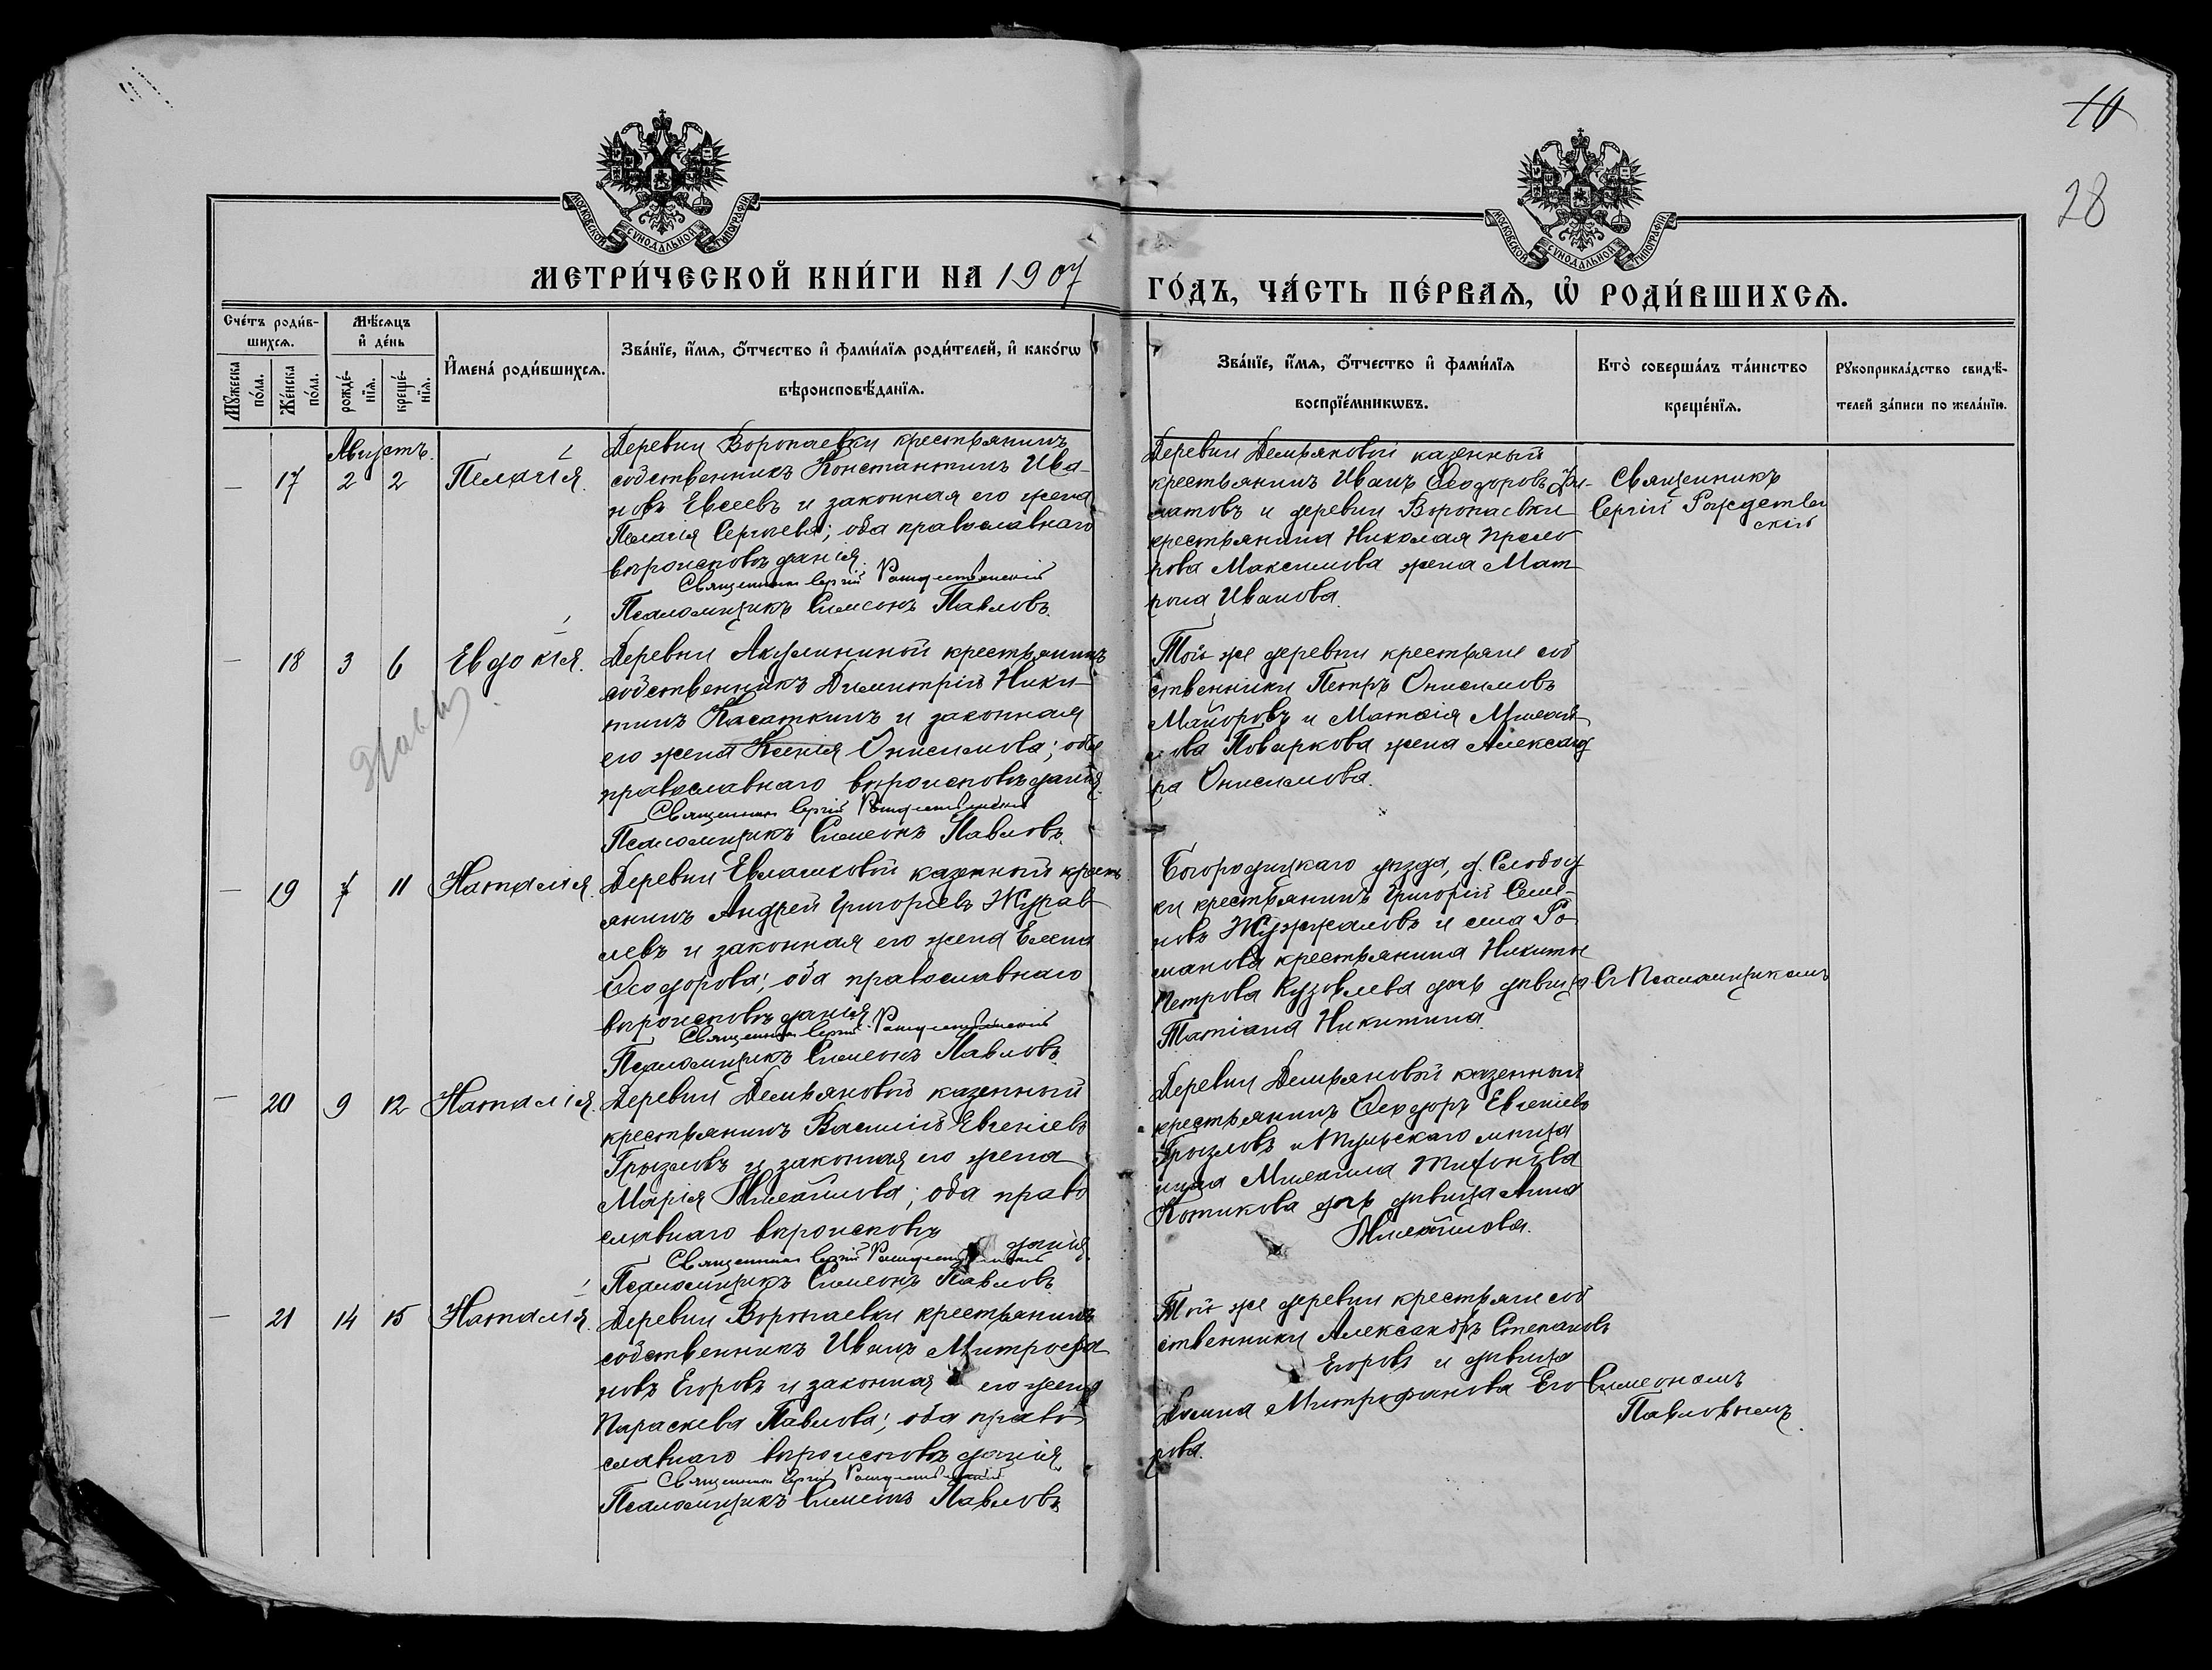 10
28
МОСКОВСКОЙ СѴНОДАЛЬНОЙ ТИПОГРАФІИ
МОСКОВСКОЙ СѴНОДАЛЬНОЙ ТИПОГРАФІИ
МЕТРИ́ЧЕСКОЙ КНИ́ГИ НА 1907
ГО́ДЪ, ЧА́СТЬ ПЕ́РВАѦ, Ѽ РОДИ́ВШИХСѦ.
Сче́тъ роди́в-
шихсѧ.
Мꙋ́жеска
по́ла.
Же́нска
по́ла.
Мѣ́сѧцъ
и҆ де́нь
рожде́-
нїѧ.
креще́-
нїѧ.
И҆мена̀ роди́вшихсѧ.
Зва́нїе, и҆́мѧ, ѻ҆́тчество и҆ фами́лїѧ роди́телей, и҆ како́гѡ
вѣроисповѣ́данїѧ.
Зва́нїе, и҆́мѧ, ѻ҆́тчество и҆ фами́лїѧ
воспрїе́мникѡвъ.
Кто̀ соверша́лъ та́инство
креще́нїѧ.
Рꙋкоприкла́дство свидѣ́-
телей за́писи по жела́нїю.
Августъ.
— 17 2 2 Пелагія.
Деревни Воропаевки крестьянинъ
собственникъ Константинъ Ива-
новъ Евсеевъ и законная его жена
Пелагія Сергѣева; оба православнаго
вѣроисповѣданія.
Священникъ Сергій Рождественскій
Псаломщикъ Симеонъ Павловъ.
Деревни Демьяновой казенный
крестьянинъ Иванъ Ѳеодоровъ
и деревни Воропаевки
крестьянина Николая Прохо
рова Максимова жена Мат
рона Иванова.
Священникъ
Сергій Рождествен
скій
— 18 3 6 Евдокія.
Деревни Акулининой крестьянинъ
собственникъ Димитрій Ники-
тинъ Касаткинъ и законная
его жена Ксенія Онисимова; оба
православнаго вѣроисповѣданія.
Священникъ Сергій Рождественскій
Псаломщикъ Симеонъ Павловъ.
Той-же деревни крестьяне соб
ственники Петръ Онисимовъ
Майоровъ и Матѳія Михай
лова Поваркова жена Александ
ра Онисимова.
— 19 7 11 Наталія.
Деревни Евлашковой казенный кресть
янинъ Андрей Григорьевъ Журав
левъ и законная его жена Елена
Ѳеодорова; оба православнаго
вѣроисповѣданія.
Священникъ Сергій Рождественскій
Псаломщикъ Симеонъ Павловъ.
Богородицкаго уѣзда, д. Слобод
ки крестьянинъ Григорій Семе-
новъ Жужжаловъ и села Ро
манова крестьянина Никиты
Петрова Кузовлева дочь дѣвица
Татіана Никитина.
Съ Псаломщикомъ
— 20 9 12 Наталія.
Деревни Демьяновой казенный
крестьянинъ Василій Евгеніевъ
Грызловъ и законная его жена
Марія Михайлова; оба право
славнаго вѣроисповѣ
данія.
Священникъ Сергій Рождественскій
Псаломщикъ Симеонъ Павловъ.
Деревни Демьяновой казенный
крестьянинъ Ѳеодоръ Евгеніевъ
Грызловъ и Тульскаго мѣща
нина Михаила Тихонова
Котикова дочь дѣвица Анна
Михайлова.
— 21 14 15 Наталія.
Деревни Воропаевки крестьянинъ
собственникъ Иванъ Митрофа
новъ Егоровъ и законная его жена
Параскева Павлова; оба право
славнаго вѣроисповѣданія.
Священникъ Сергій Рождественскій
Псаломщикъ Симеонъ Павловъ
Той же деревни крестьяне соб
ственники Александръ Степановъ
Егоровъ и дѣвица
Домна Митрофанова Его
рова.
Симеономъ
Павловымъ.